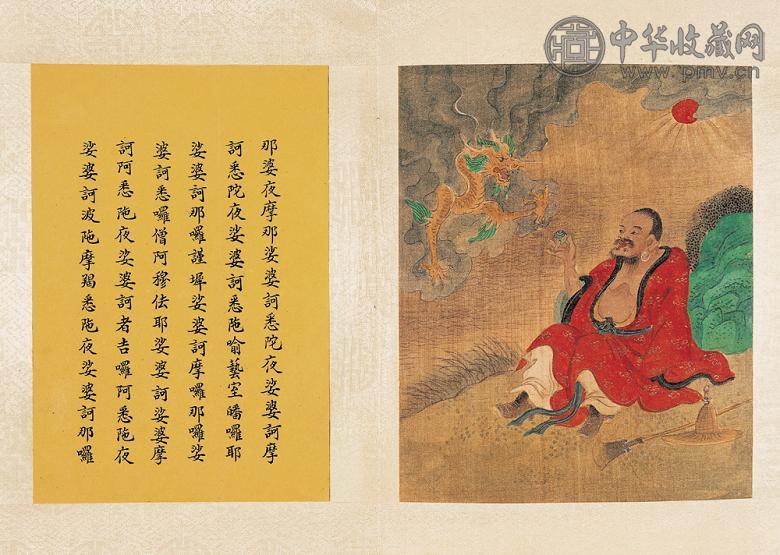 那婆夜摩那娑婆訶悉陀夜娑婆訶摩
訶悉陀夜娑婆訶悉陁喻藝室皤囉耶
娑婆訶那囉謹墀娑婆訶摩囉那囉娑
婆訶悉囉僧阿穆佉耶娑婆訶娑婆摩
訶阿悉陁夜娑婆訶者吉囉阿悉陁夜
娑婆訶波陁摩羯悉陁夜娑婆訶那囉
中华收藏网
www.pmv.cn